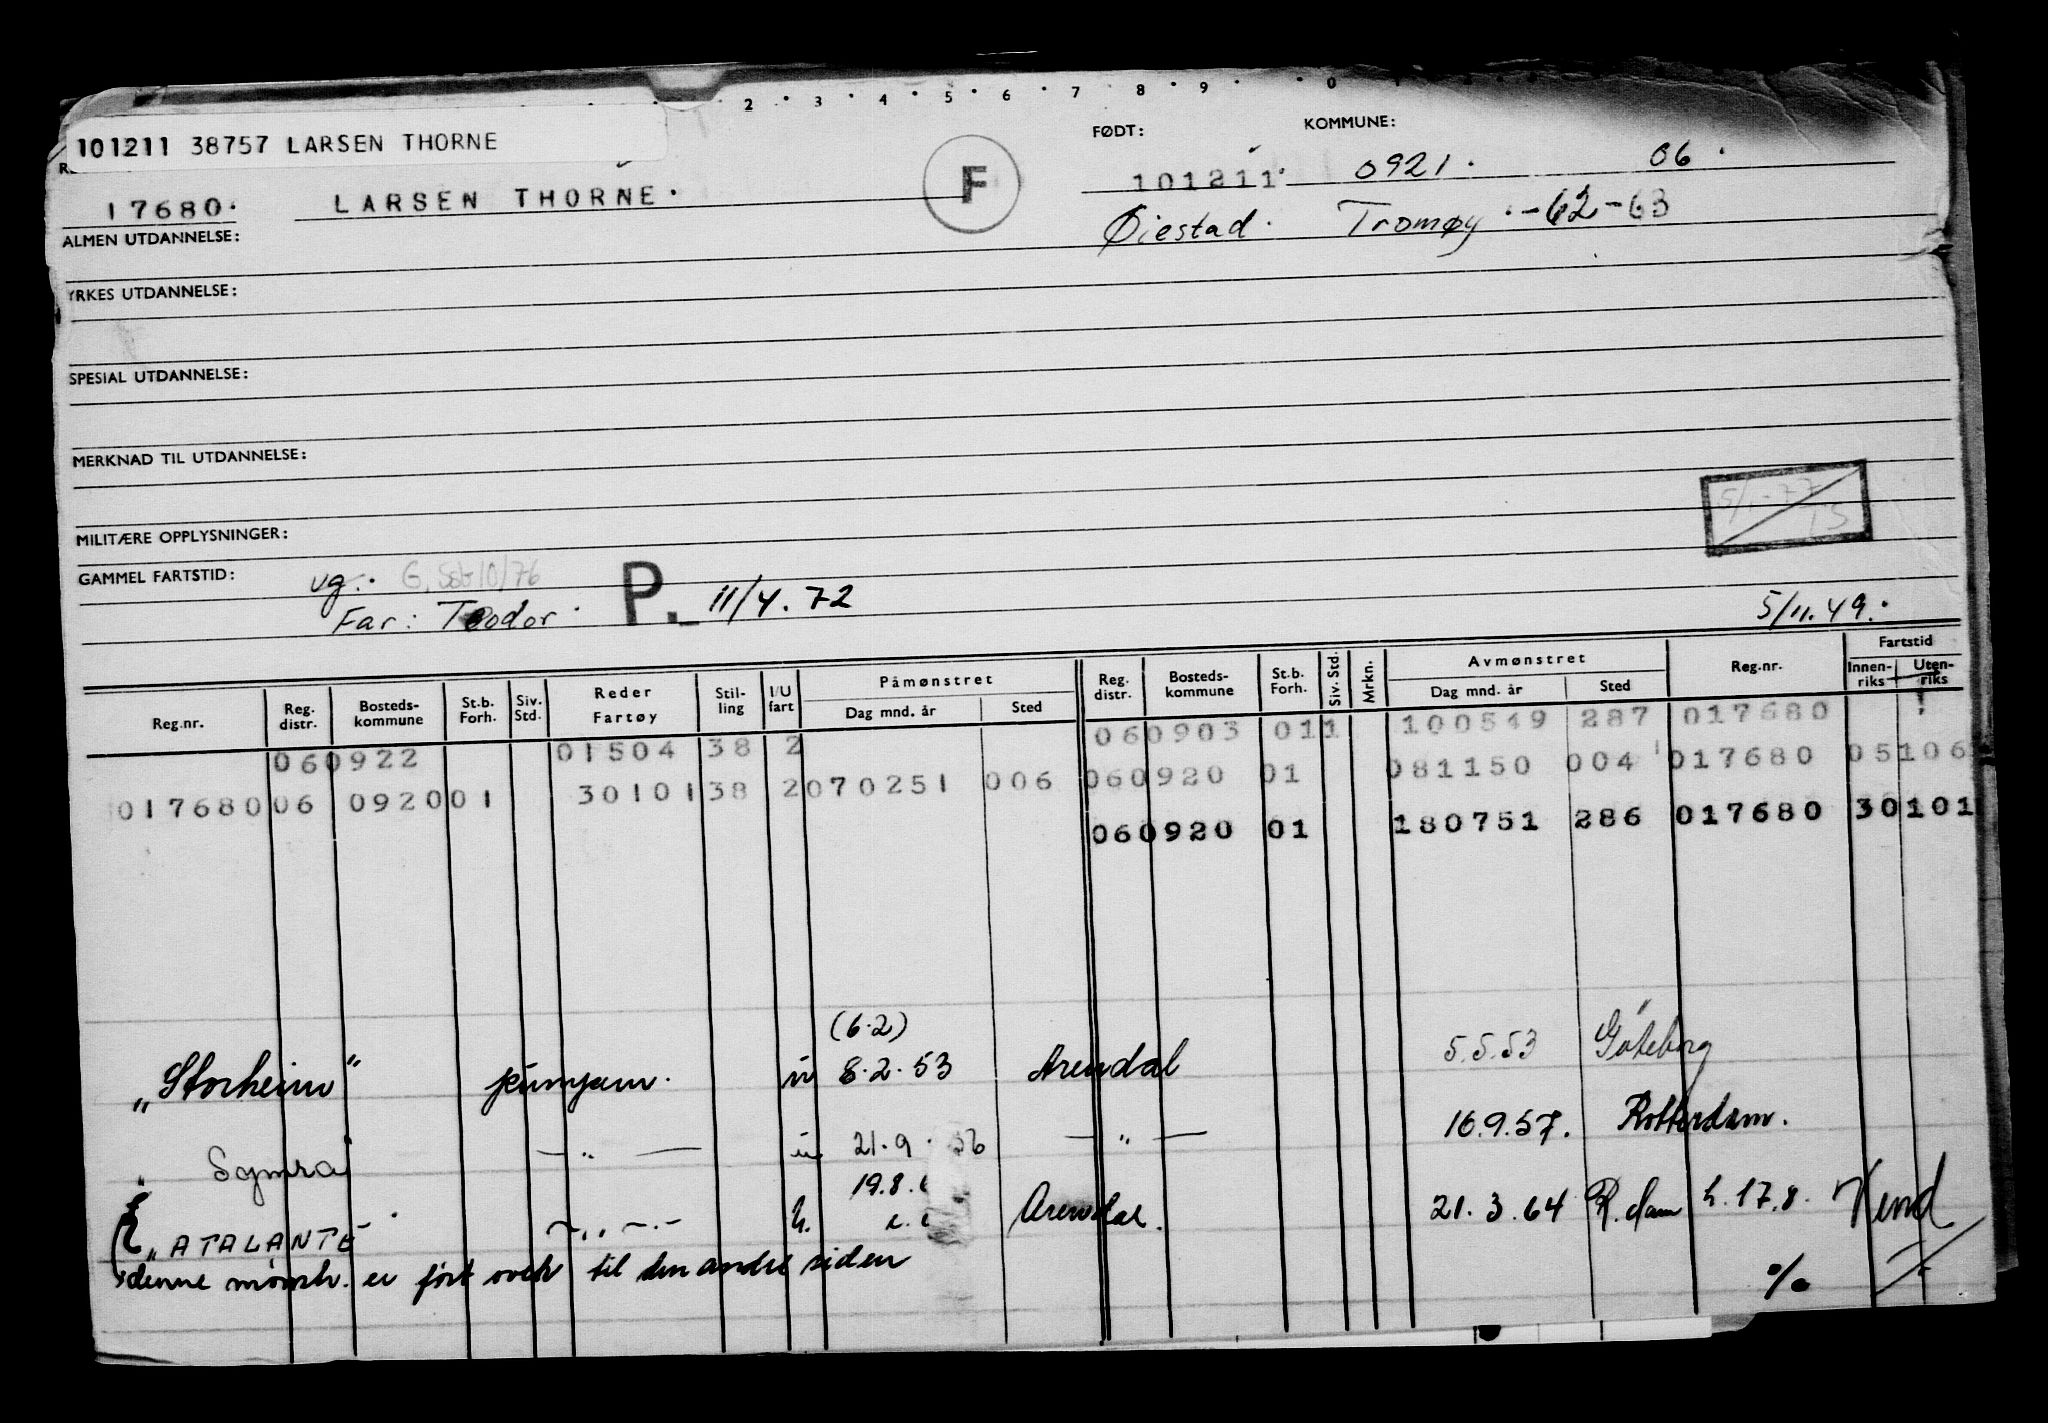 2 · 3 · 4 · 5 · 6 · 7 · 8 · 9 · · 0
101211 38757 LARSEN THORNE
FØDT: KOMMUNE:
F
17680. LARSEN THORNE. 101211. 0921. 06.
Øiestad. Tromøy. -62-63
ALMEN UTDANNELSE:
YRKES UTDANNELSE:
SPESIAL UTDANNELSE:
MERKNAD TIL UTDANNELSE:
5/1-77
MILITÆRE OPPLYSNINGER:
GAMMEL FARTSTID: vg.
Far: Teodor. P. 11/4.72 5/11.49.
Reg.nr. Reg. distr. Bosteds-kommune St.b. Forh. Siv. Std. Reder Fartøy Stil-ling I/U fart Påmønstret Dag mnd. år Sted Reg. distr. Bosteds-kommune St.b. Forh. Siv. Std. Mrkn. Avmønstret Dag mnd. år Sted Reg.nr. Fartstid Innen-riks Uten-riks
060922 01504 38 2 060903 011 100549 287 017680
017680 06 0920 01 30101 38 2 070251 006 060920 01 081150 004 017680 05106
060920 01 180751 286 017680 30101
(6.2)
"Storheim" pumpem. u 8.2.53 Arendal 5.5.53 Göteborg
" Symra" — " — u 21.9. 56 — " — 16.9.57. Rotterdam.
19.8.
"ATALANTE" — " — U. Arendal. 21.3.64 R.dam h.17.8. Vend
denne mønstr. er ført over til den andre siden %